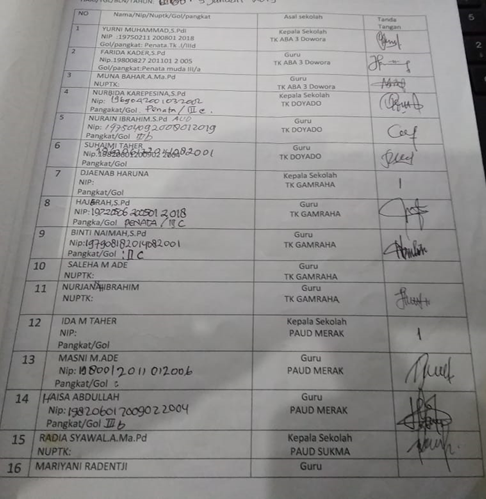 NO Nama/Nip/Nuptk/Gol/pangkat Asal sekolah Tanda Tangan
1 YURNI MUHAMMAD,S.Pdl Kepala Sekolah
NIP :19750211 200801 2018 TK ABA 3 Dowora
Gol/pangkat: Penata.Tk .I/IIId
2 FARIDA KADER,S.Pd Guru
Nip.19800827 201101 2 005 TK ABA 3 Dowora
Gol/pangkat:Penata muda III/a
3 MUNA BAHAR,A.Ma.Pd Guru
NUPTK: TK ABA 3 Dowora
4 NURBIDA KAREPESINA,S.Pd Kepala Sekolah
Nip: TK DOYADO
Pangakat/Gol Penata / III c.
5 NURAIN IBRAHIM,S.Pd AUD Guru
Nip: 197504092008012019 TK DOYADO
Pangkat/Gol III/b
6 SUHAIMI TAHER Guru
Nip. TK DOYADO
Pangkat/Gol
7 DJAENAB HARUNA Kepala Sekolah
NIP: TK GAMRAHA
Pangkat/Gol
8 HAJARAH,S.Pd Guru
NIP: 19720506 200501 2018 TK GAMRAHA
Pangka/Gol PENATA / III C
9 BINTI NAIMAH,S.Pd Guru
Nip:197908182014082001 TK GAMRAHA
Pangkat/Gol : II C
10 SALEHA M ADE Guru
NUPTK: TK GAMRAHA
11 NURJANAH IBRAHIM Guru
NUPTK: TK GAMRAHA
12 IDA M TAHER Kepala Sekolah
NIP: PAUD MERAK
Pangkat/Gol
13 MASNI M.ADE Guru
Nip: PAUD MERAK
Pangkat/Gol :
14 HAISA ABDULLAH Guru
Nip: 198206017009022004 PAUD MERAK
Pangkat/Gol III b
15 RADIA SYAWAL.A.Ma.Pd Kepala Sekolah
NUPTK: PAUD SUKMA
16 MARIYANI RADENTJI Guru